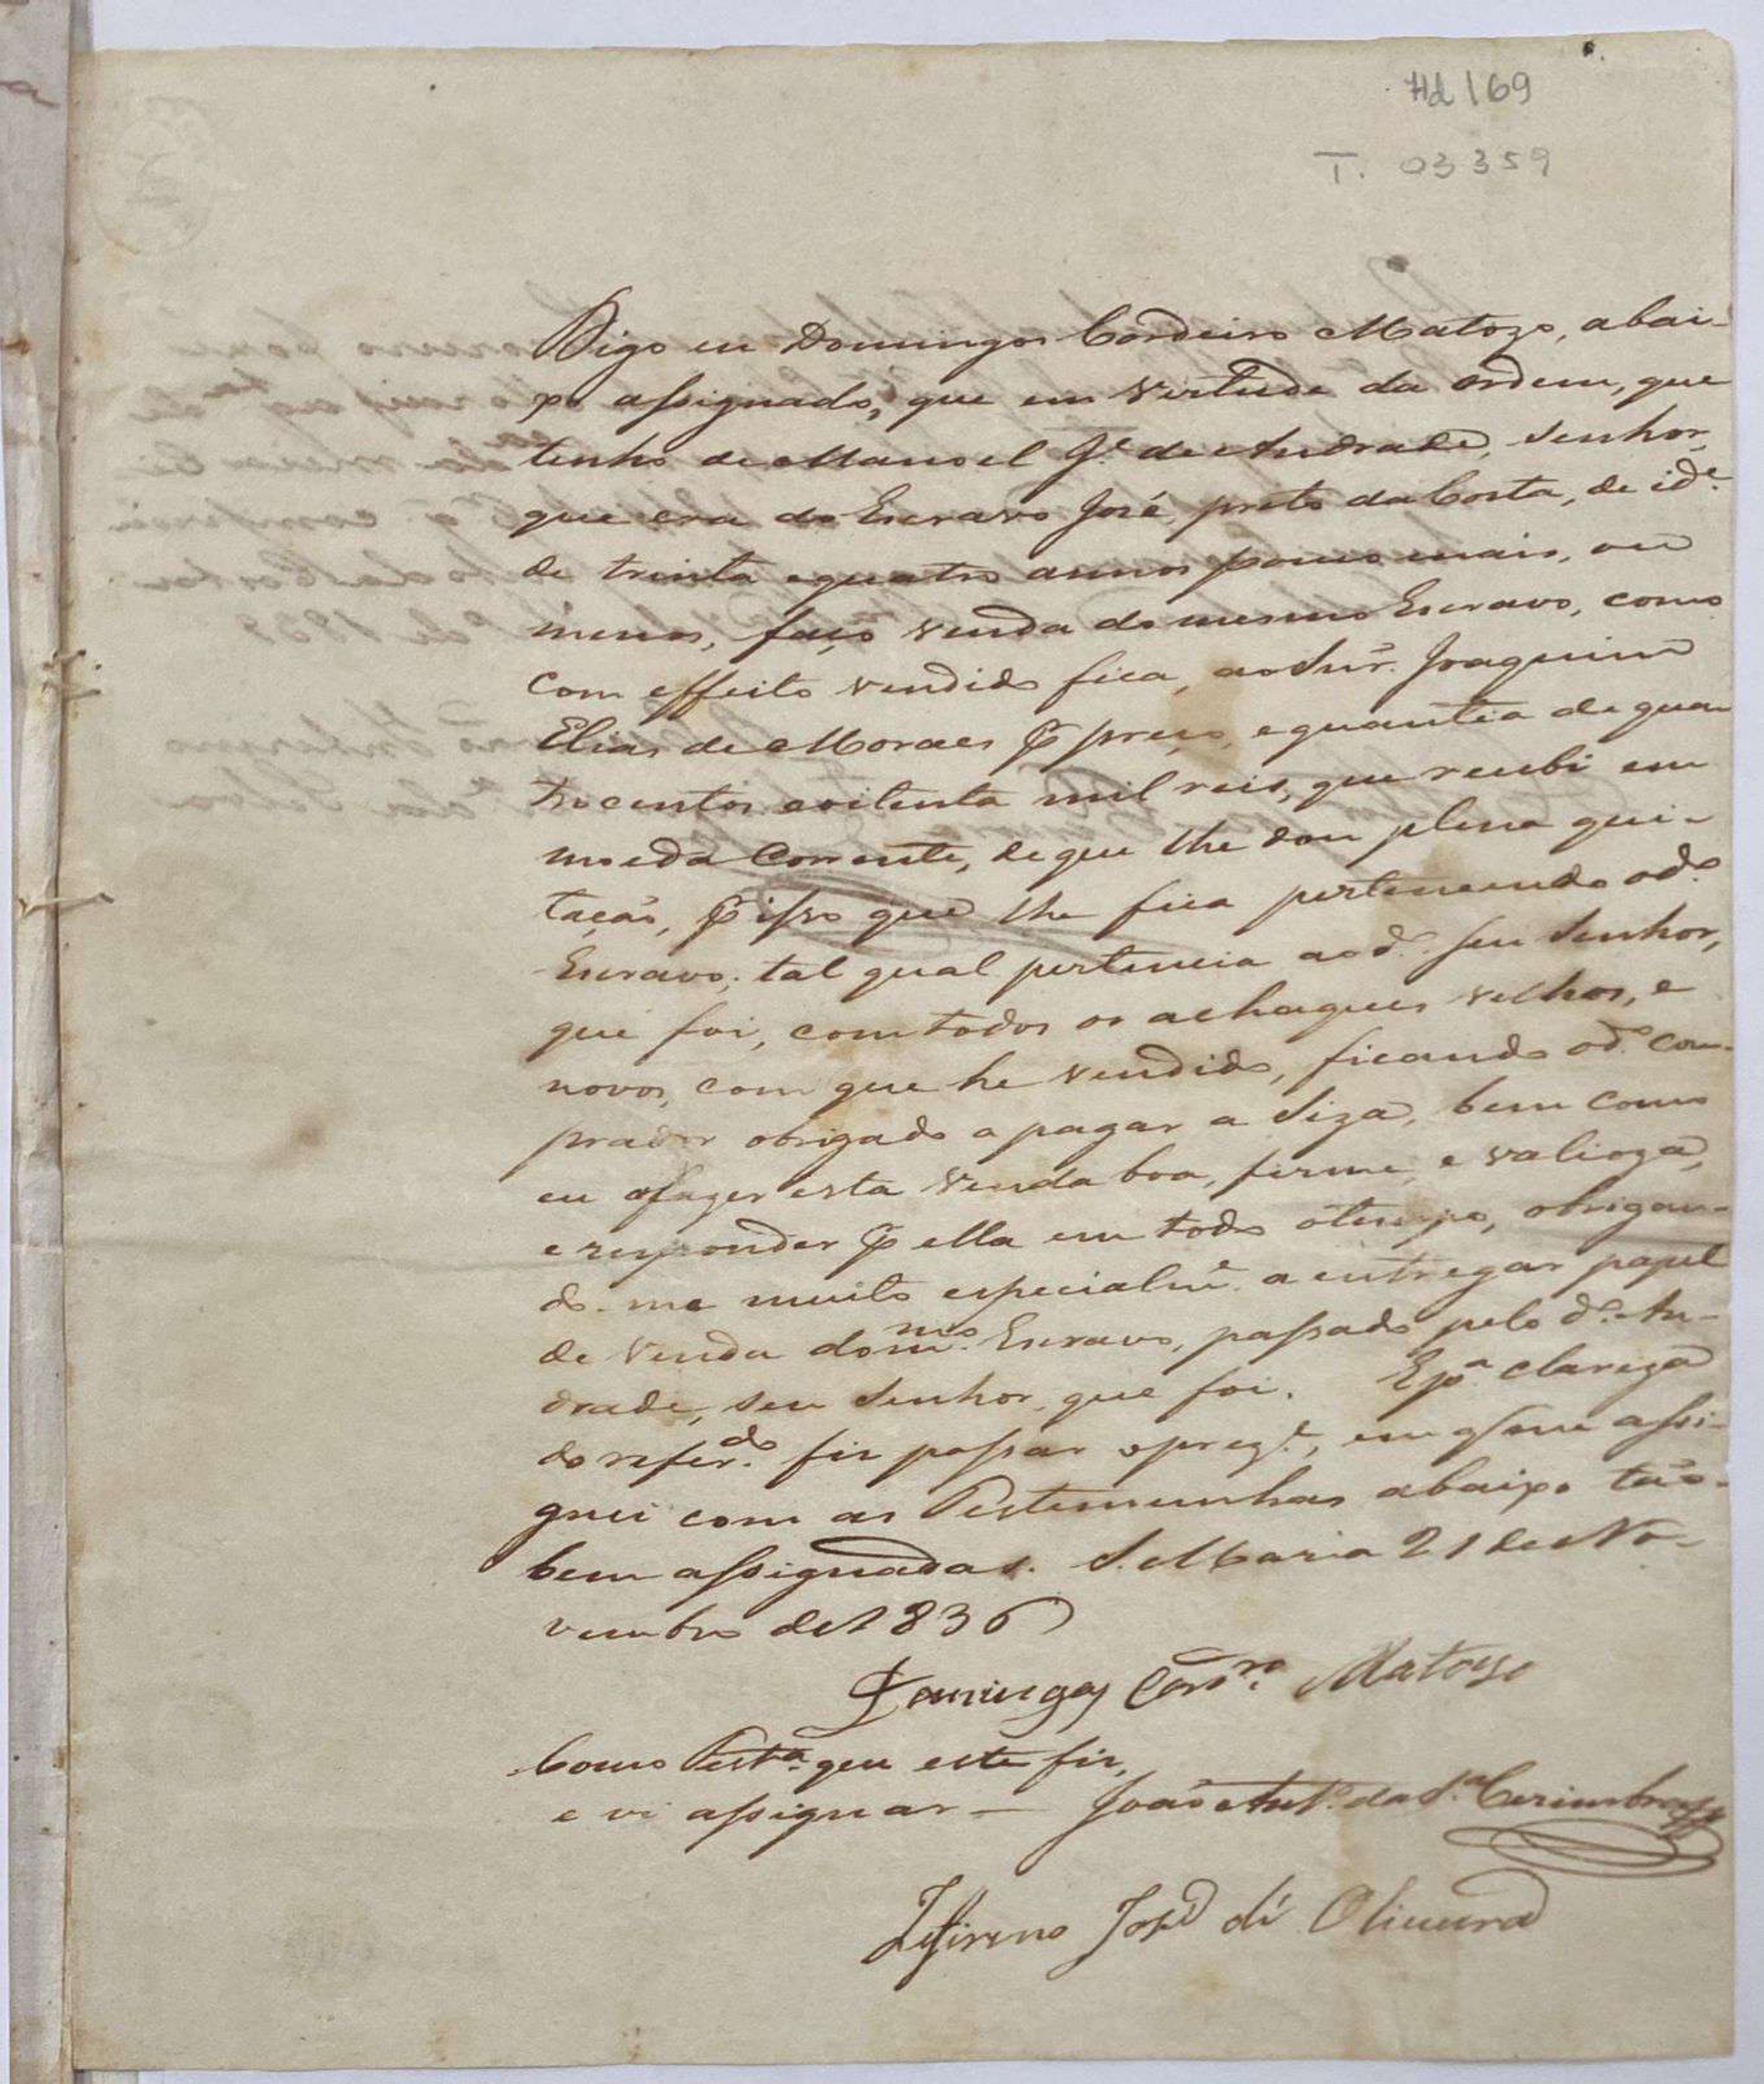 Hd 169
T. 03359
Digo eu Domingos Cordeiro Matozo, abai-
xo assignado, que em virtude da ordem, que
tenho de Manoel Je. de Andrade, Senhor,
que era do Escravo José, preto da Costa, de ide.
de trinta e quatro annos pouco mais, ou
menos, faço venda do mesmo Escravo, como
com effeito vendido fica, ao Snr. Joaquim
Elias de Moraes p preço, e quantia de qua-
trocentos e oitenta mil reis, que recebi em
moeda Corrente, de que lhe dou plena qui-
tação, p isso que lhe fica pertencendo o do.
Escravo, tal qual pertencia ao do. seu Senhor,
que foi, com todos os achaques velhos, e
novos, com que he vendido, ficando o do. com-
prador obrigado a pagar a Siza, bem como
eu a fazer esta venda boa, firme, e valioza,
e responder p ella em todo o tempo, obrigan-
do-me muito especialme. a entregar papel
de venda do mmo. Escravo, passado pelo do. An-
drade, seu Senhor, que foi. E pa. clareza
do referdo. fiz passar o preze., em q me assi-
gnei com as Testemunhas abaixo tão-
bem assignadas. S. Maria 21 de No-
vembro de 1836
Domingos Cordro. Matozo
Como Testa. que este fiz,
e vi assignar — João Anto. da Sa.
José de Oliveira